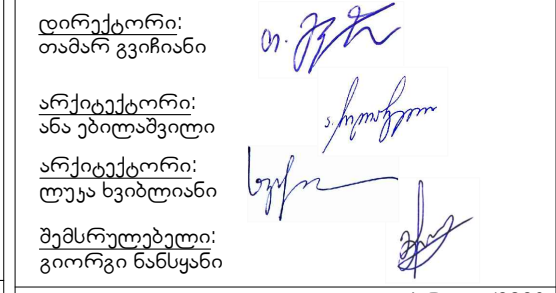 დირექტორი:
თამარ გვიჩიანი
არქიტექტორი:
ანა ებილაშვილი
არქიტექტორი:
ლუკა ხვიბლიანი
შემსრულებელი:
გიორგი ნანსყანი